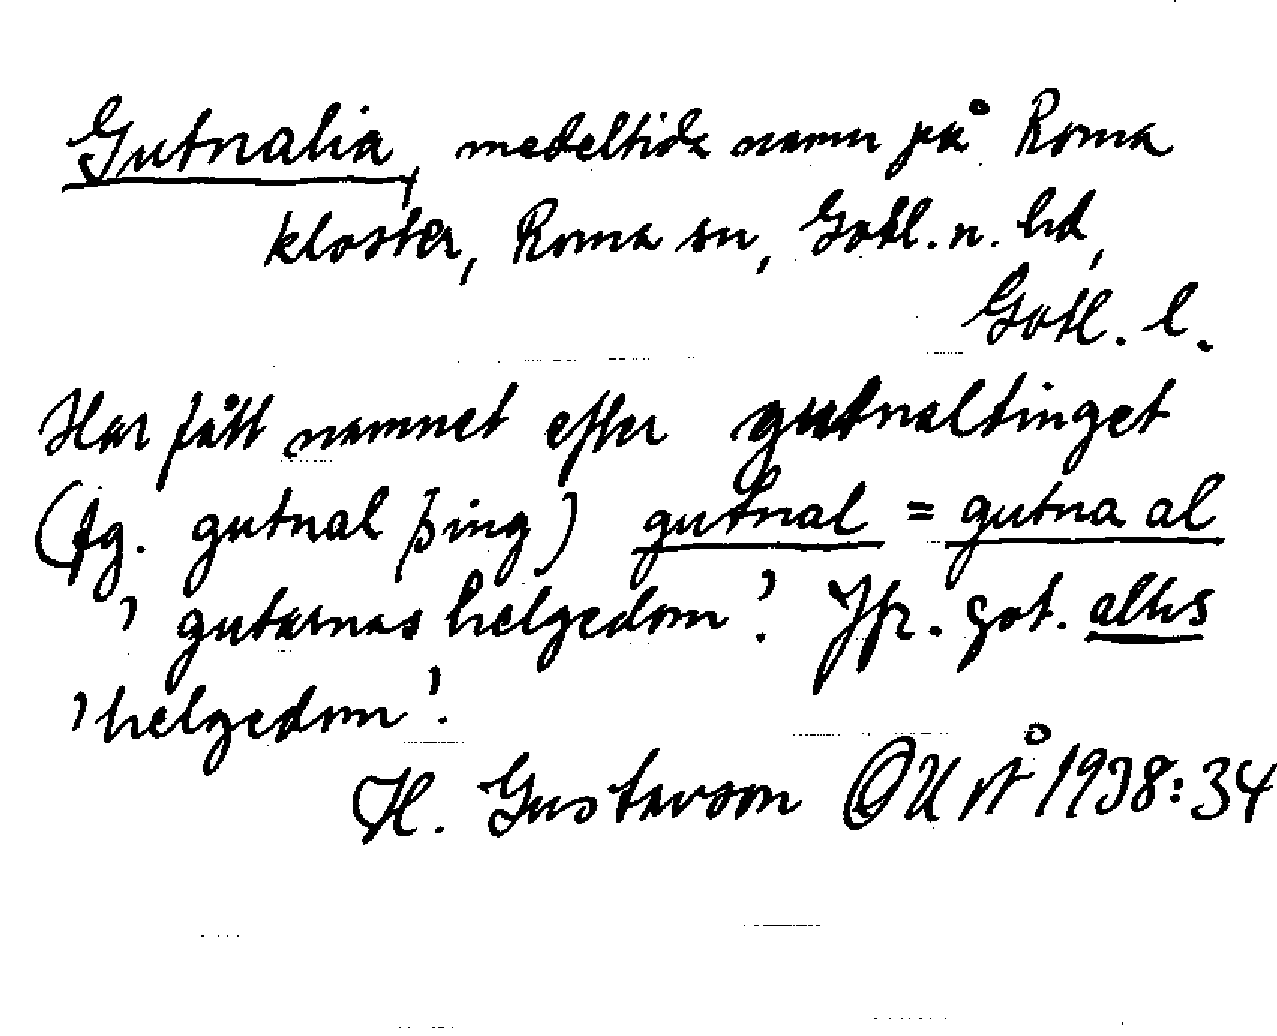 Gutnalia, medeltida namn på Roma
kloster, Roma sn, Gotl. n. hd,
Gotl. l.
Har fått namnet efter gutnaltinget
(fg. gutnal þing) gutnal = gutna al
'gutarnas helgedom'. Jfr. got. alhs
'helgedom'.
H. Gustavson OUÅ 1938:34